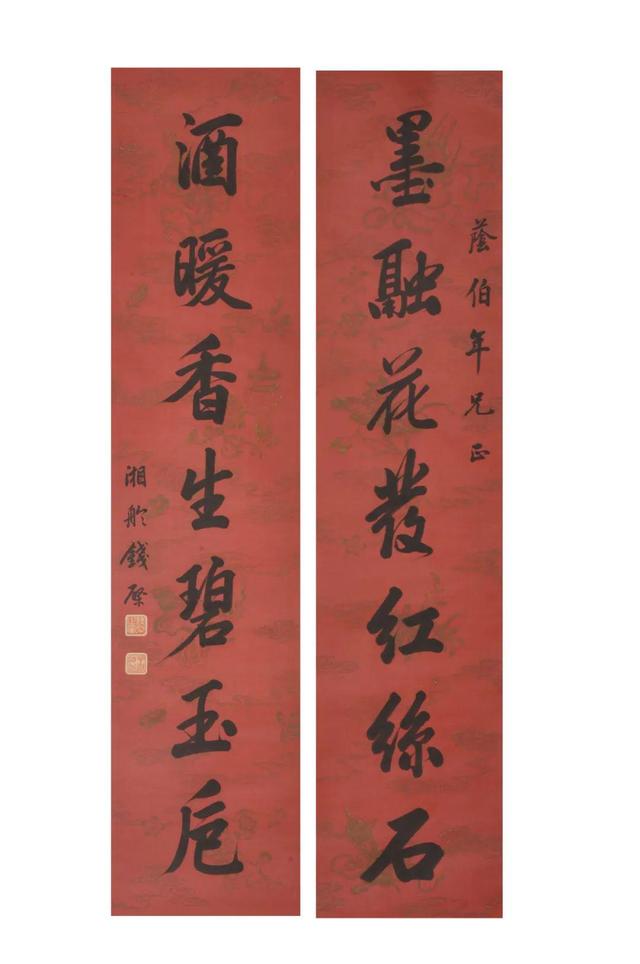 蔭伯年兄正
墨融花發紅絲石
酒暖香生碧玉巵
湘舲錢棨